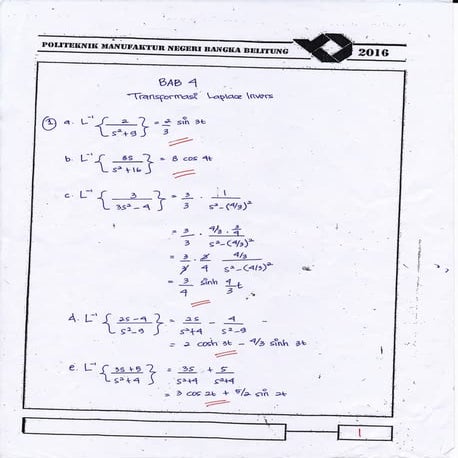 POLITEKNIK MANUFAKTUR NEGERI BANGKA BELITUNG 2016
BAB 4
Transformasi Laplace Invers
① a. L⁻¹ { 2 / s²+9 } = 2/3 sin 3t
b. L⁻¹ { 8s / s²+16 } = 8 cos 4t
c. L⁻¹ { 3 / 3s²-4 } = 3/3 . 1 / s²-(4/3)²
= 3/3 . 4/3 . 3/4 / s²-(4/3)²
= 3/3 . 3/4 4/3 / s²-(4/3)²
= 3/4 sinh 4/3 t
d. L⁻¹ { 2s-4 / s²-9 } = 2s / s²+4 - 4 / s²-9
= 2 cosh 3t - 4/3 sinh 3t
e. L⁻¹ { 3s+5 / s²+4 } = 3s / s²+4 + 5 / s²+4
= 3 cos 2t + 5/2 sin 2t
1